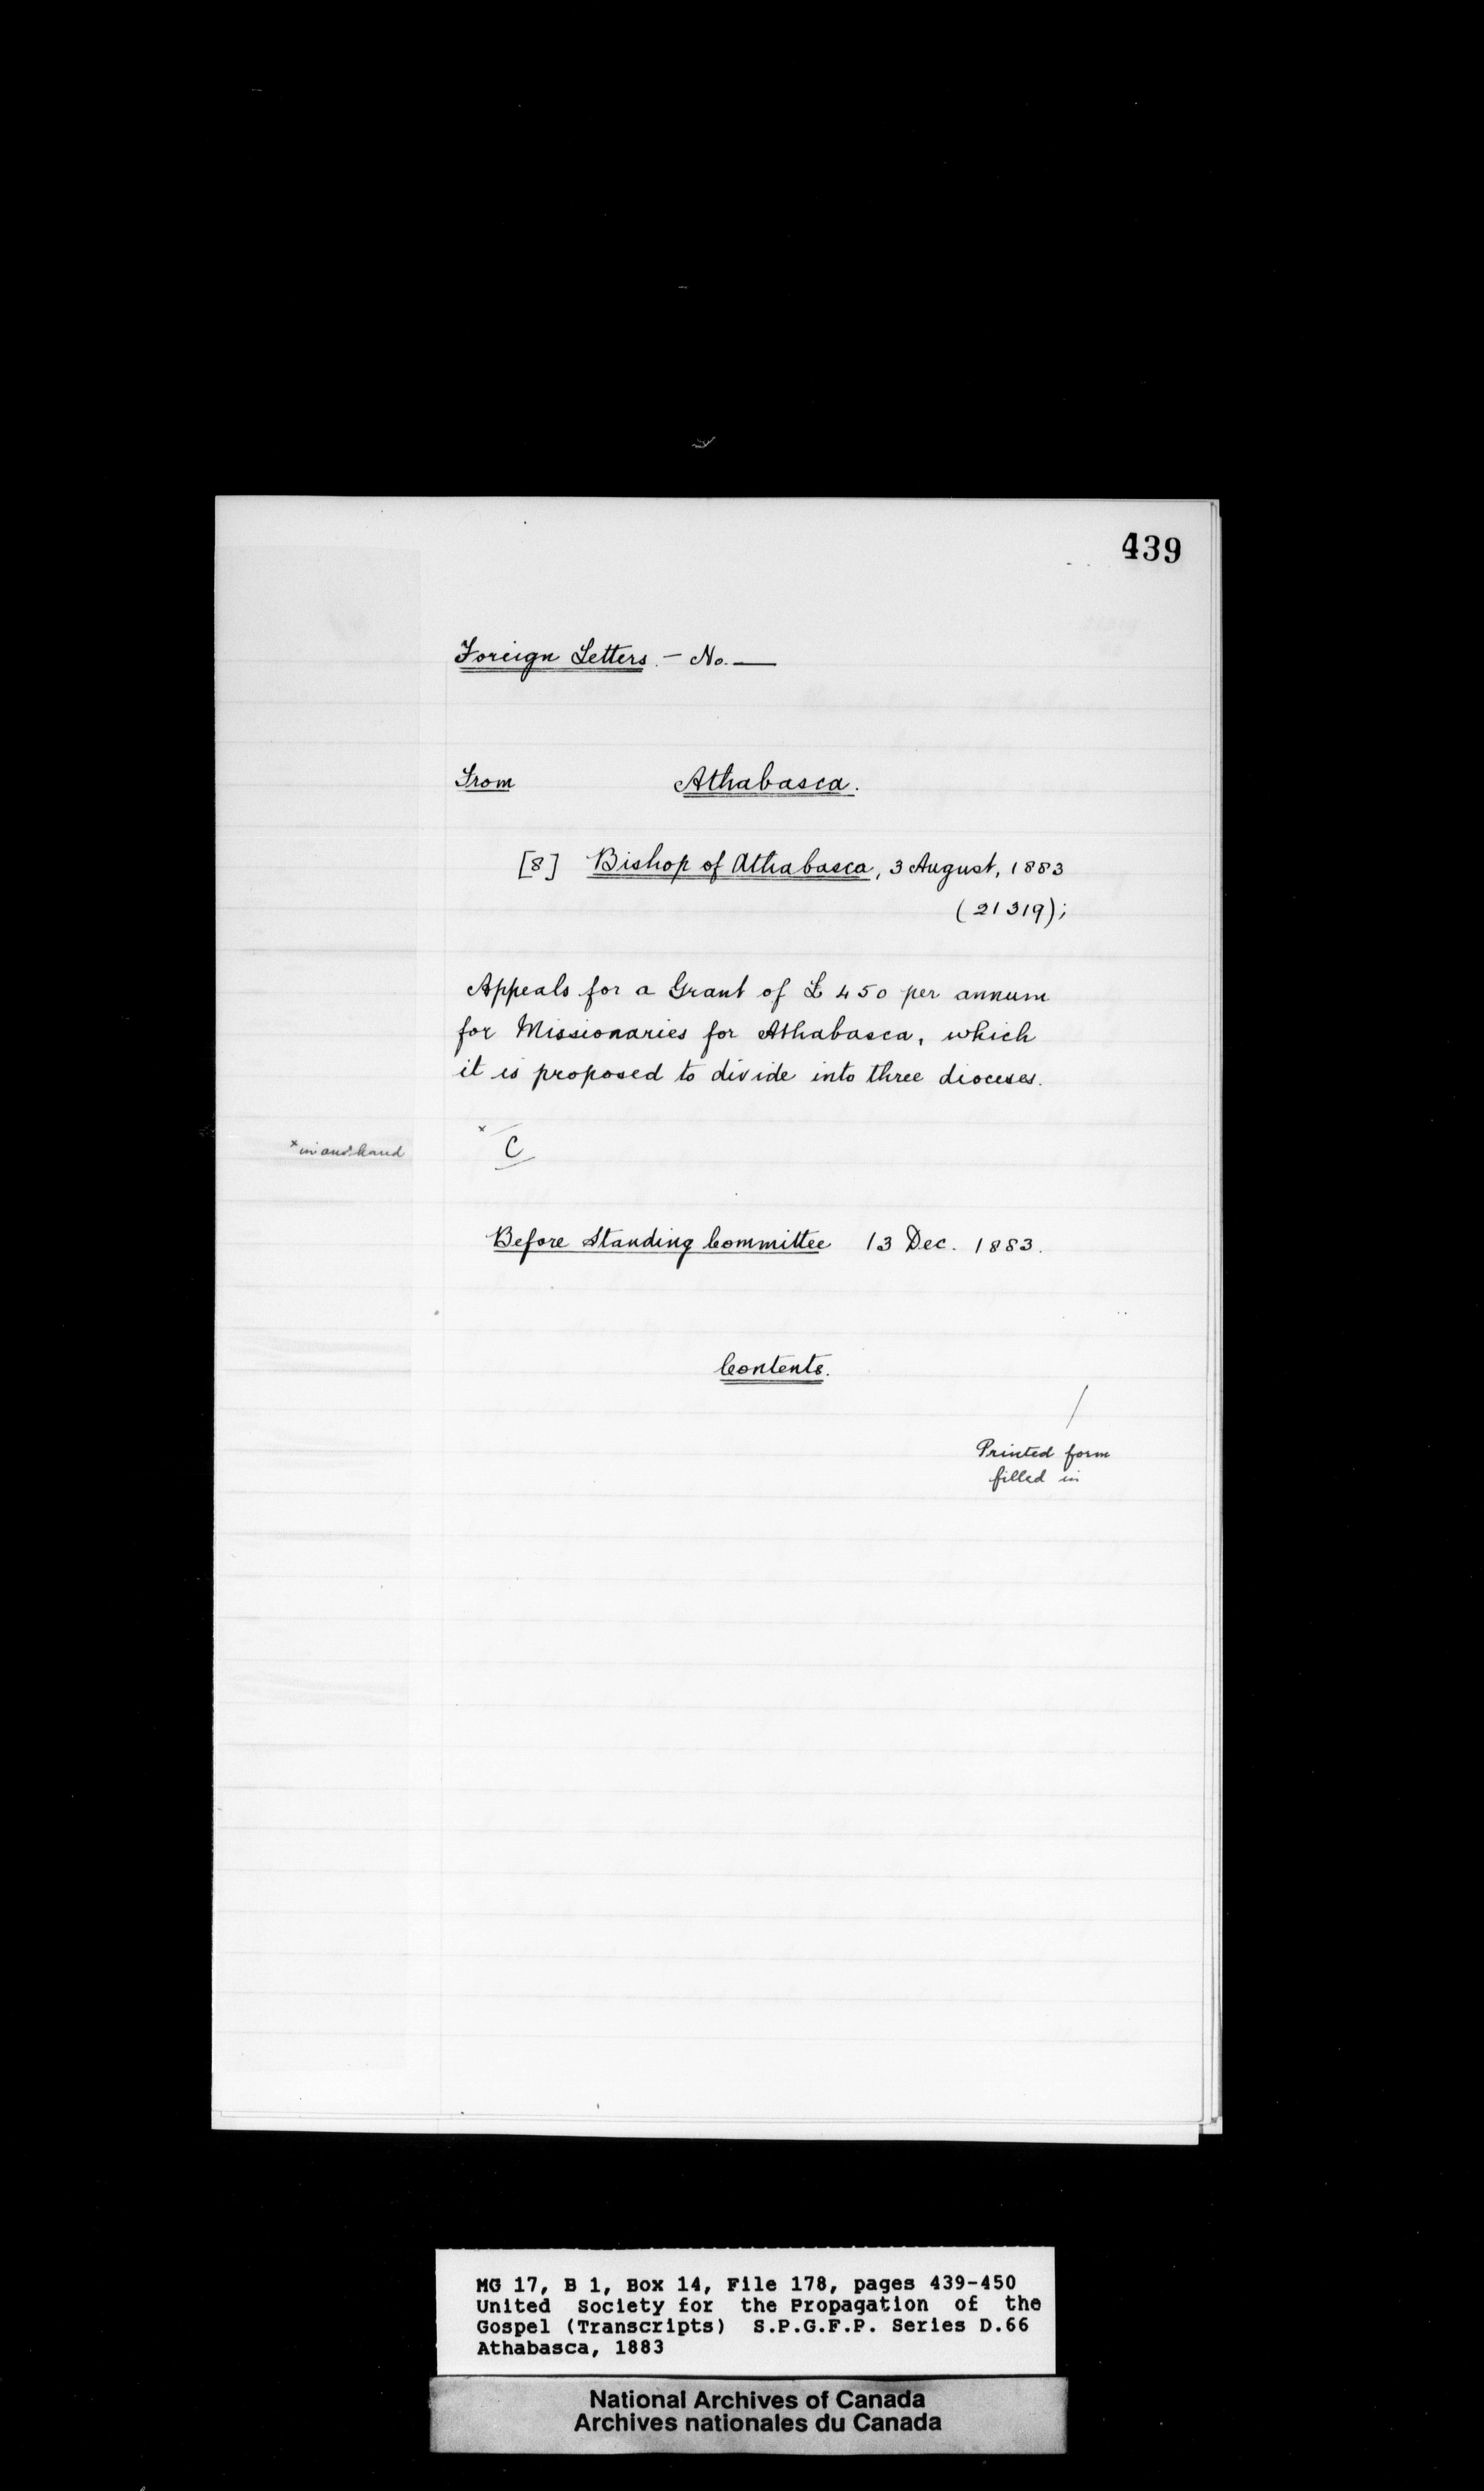 439
Foreign Letters. - No. —
From Athabasca.
[8] Bishop of Athabasca, 3 August, 1883
(21319);
Appeals for a Grant of £450 per annum
for Missionaries for Athabasca, which
it is proposed to divide into three dioceses.
x C
x in anr. hand
Before Standing Committee 13 Dec. 1883.
Contents.
/
Printed form
filled in
MG 17, B 1, Box 14, File 178, pages 439-450
United Society for the Propagation of the
Gospel (Transcripts) S.P.G.F.P. Series D.66
Athabasca, 1883
National Archives of Canada
Archives nationales du Canada